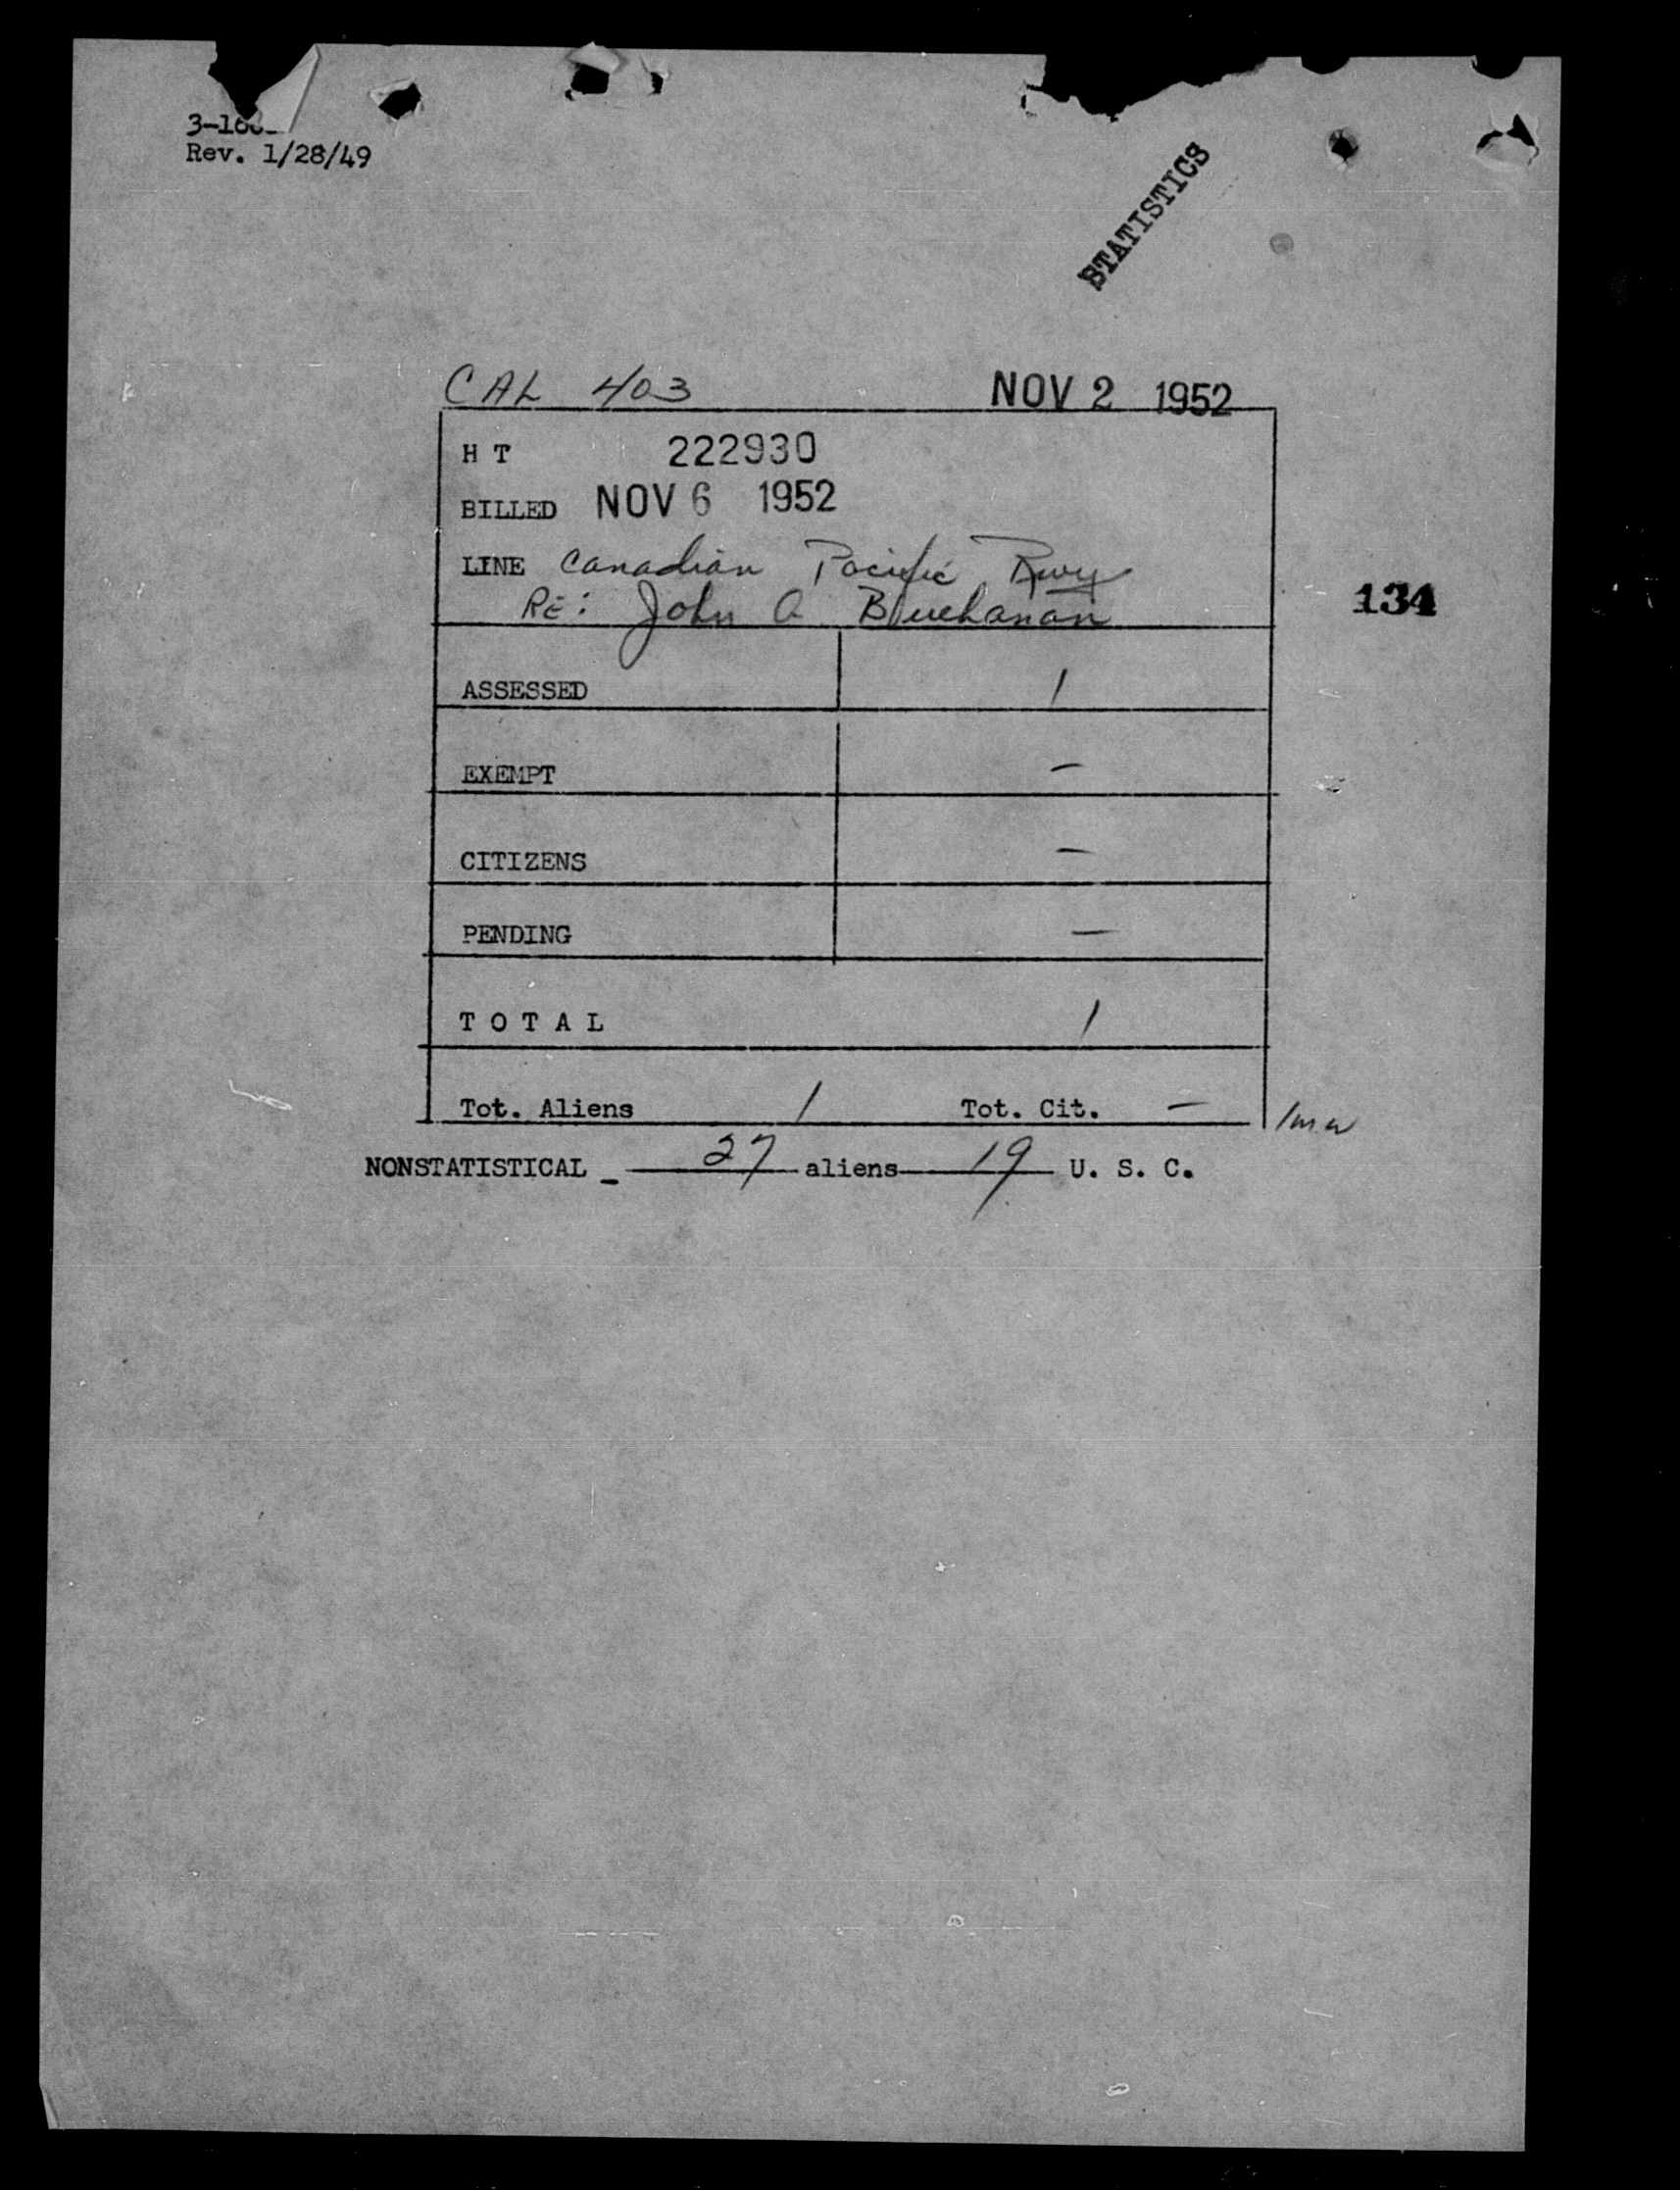 Rev. 1/28/49
STATISTICS
CAL 403 NOV 2 1952
H T 222930
BILLED NOV 6 1952
LINE Canadian Pacific Rwy
RE: John A Buchanan
134
ASSESSED 1
EXEMPT –
CITIZENS –
PENDING –
T O T A L 1
Tot. Aliens 1 Tot. Cit. –
NONSTATISTICAL - 27 aliens 19 U. S. C.